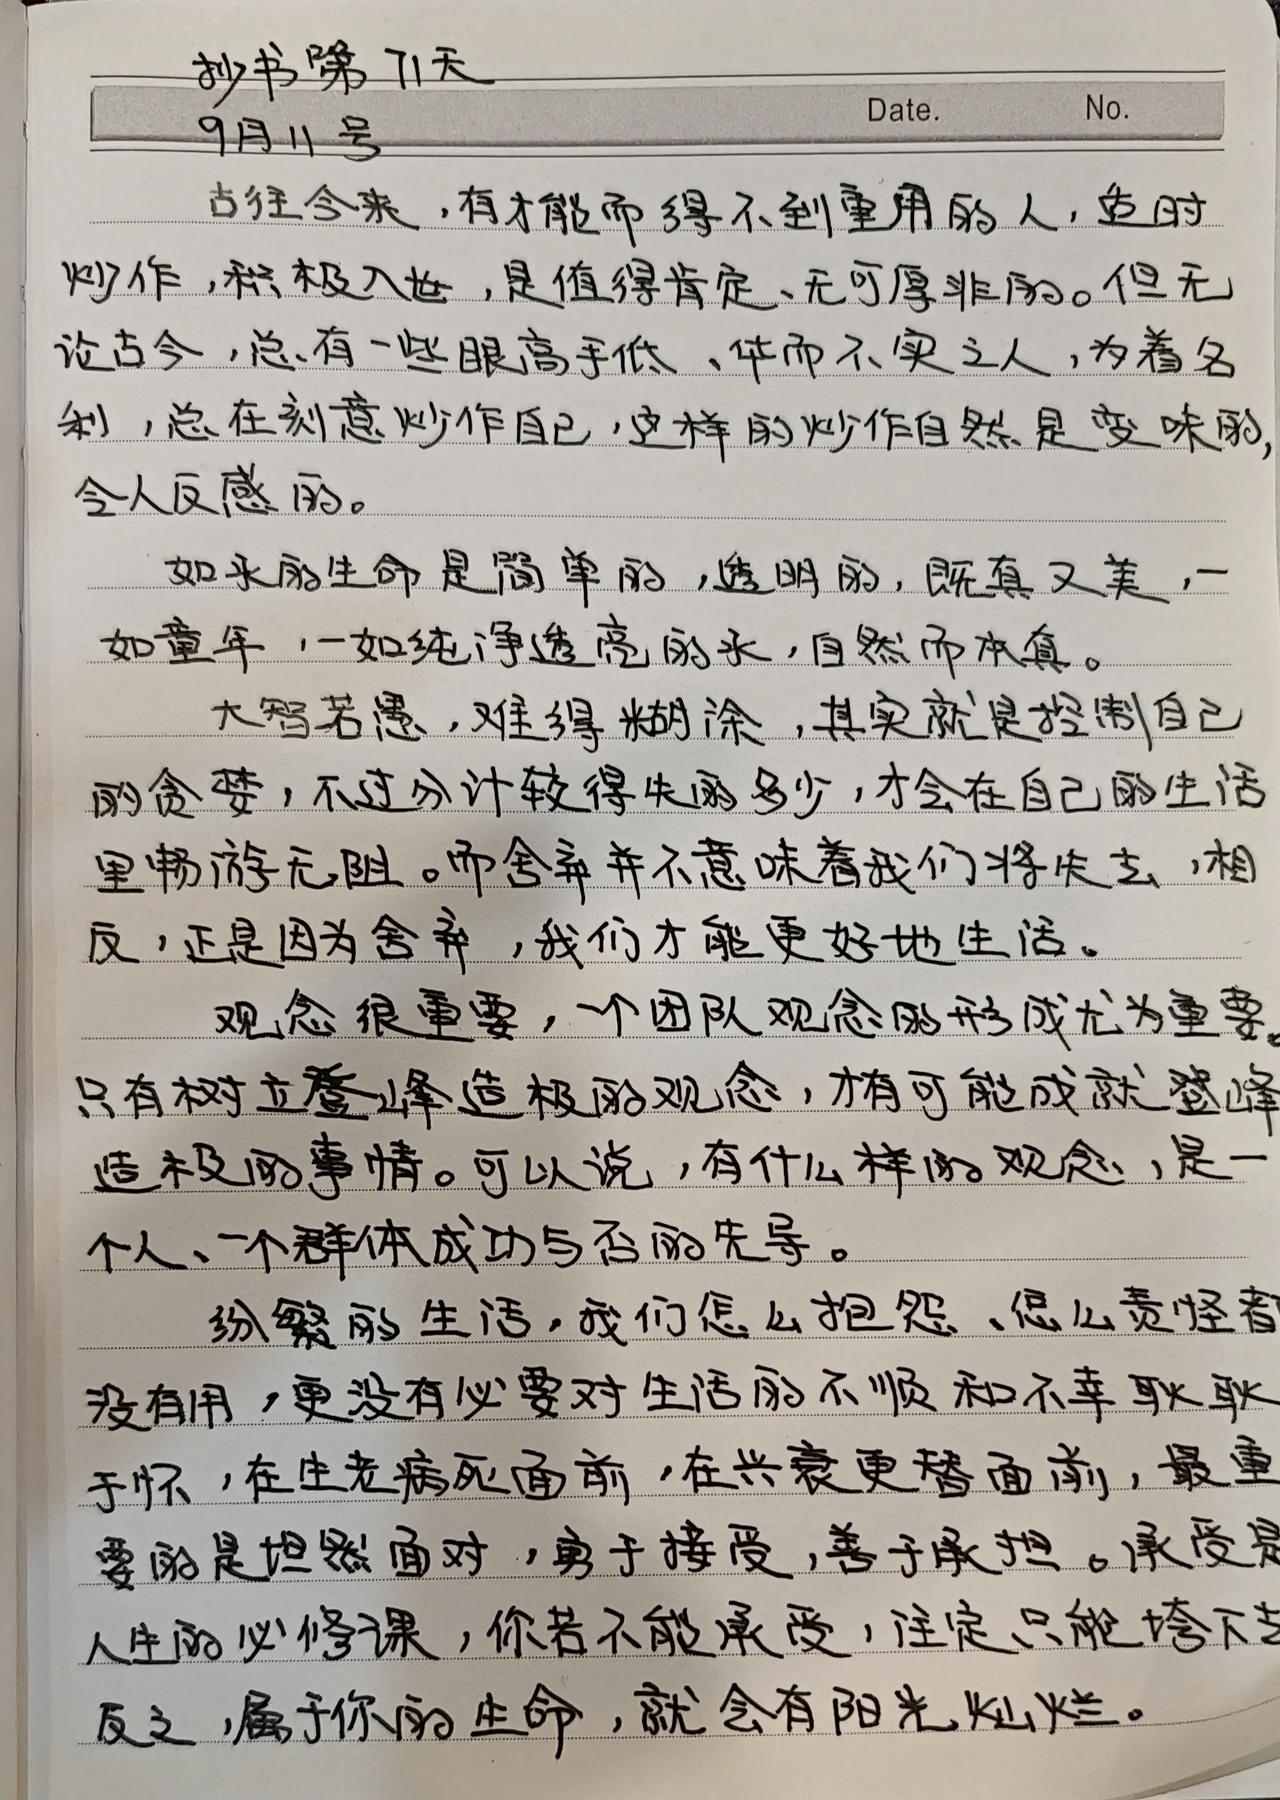 抄书第71天
Date. No.
9月11号
古往今来，有才能而得不到重用的人，适时
炒作，积极入世，是值得肯定、无可厚非的。但无
论古今，总有一些眼高手低、华而不实之人，为着名
利，总在刻意炒作自己，这样的炒作自然是变味的，
令人反感的。
如水的生命是简单的，透明的，既真又美，一
如童年，一如纯净透亮的水，自然而本真。
大智若愚，难得糊涂，其实就是控制自己
的贪婪，不过分计较得失的多少，才会在自己的生活
里畅游无阻。而舍弃并不意味着我们将失去，相
反，正是因为舍弃，我们才能更好地生活。
观念很重要，一个团队观念的形成尤为重要。
只有树立登峰造极的观念，才有可能成就登峰
造极的事情。可以说，有什么样的观念，是一
个人、一个群体成功与否的先导。
纷繁的生活，我们怎么抱怨、怎么责怪都
没有用，更没有必要对生活的不顺和不幸耿耿
于怀，在生老病死面前，在兴衰更替面前，最重
要的是坦然面对，勇于接受，善于承担。承受是
人生的必修课，你若不能承受，注定只能垮下去
反之，属于你的生命，就会有阳光灿烂。